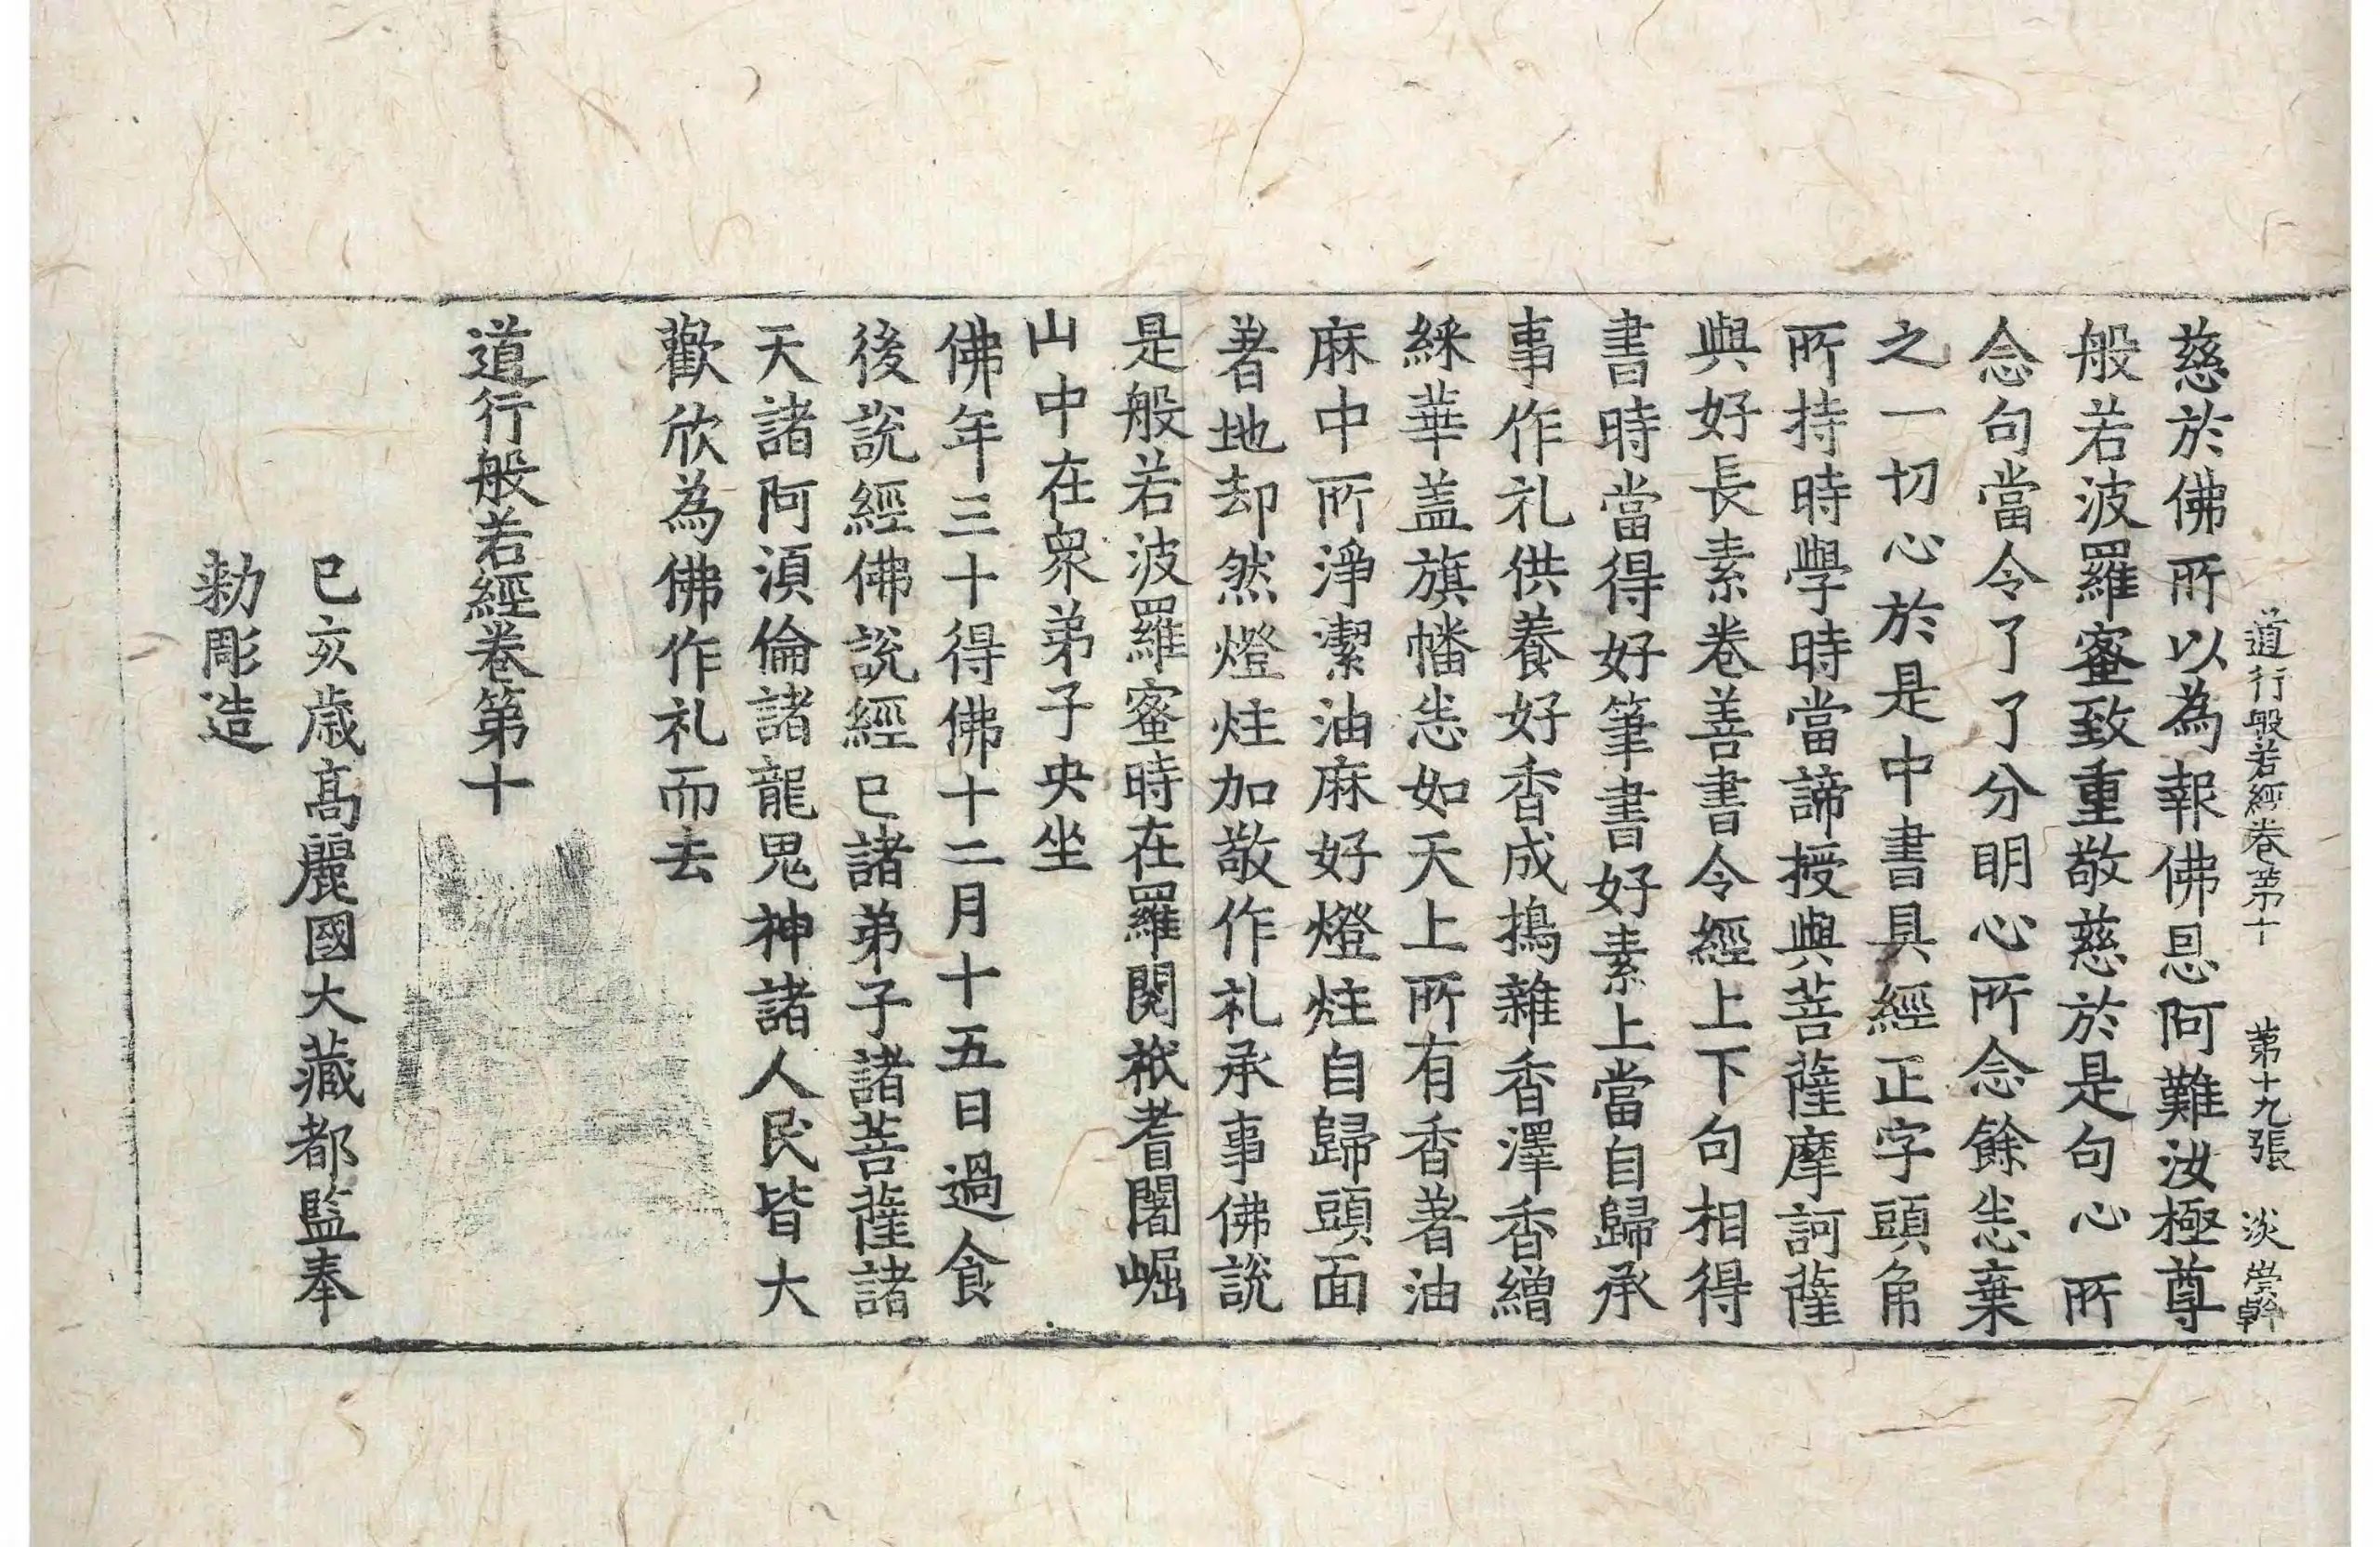 道行般若經卷第十 第十九張 淡 崇幹
慈於佛所以為報佛恩阿難汝極尊
般若波羅蜜致重敬慈於是句心所
念句當令了了分明心所念餘悉棄
之一切心於是中書具經正字頭角
所持時學時當諦授與菩薩摩訶薩
與好長素卷善書令經上下句相得
書時當得好筆書好素上當自歸承
事作礼供養好香成擣雜香澤香繒
綵華盖旗幡悉如天上所有香著油
麻中所淨潔油麻好燈炷自歸頭面
著地却然燈炷加敬作礼承事佛說
是般若波羅蜜時在羅閱祇耆闍崛
山中在衆弟子央坐
佛年三十得佛十二月十五日過食
後說經佛說經已諸弟子諸菩薩諸
天諸阿湏倫諸龍鬼神諸人民皆大
歡欣為佛作礼而去
道行般若經卷第十
己亥歲髙麗國大藏都監奉
勑彫造